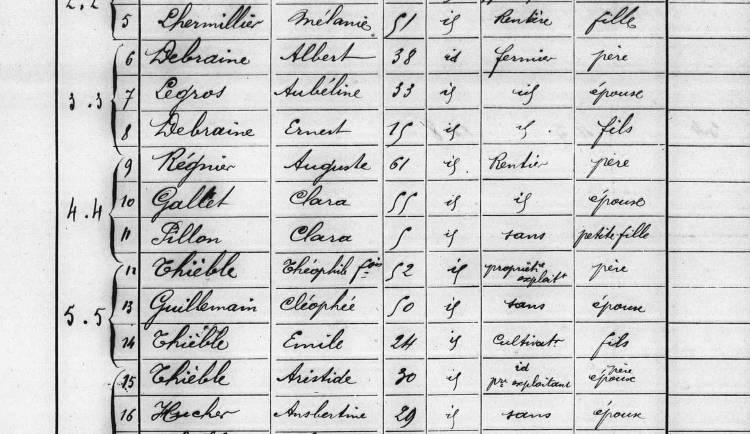 2.2
5 Lhermillier Mélanie 51 id Rentière fille
6 Debraine Albert 38 id fermier père
3.3 7 Legros Aubéline 33 id id épouse
8 Debraine Ernest 15 id id fils
9 Régnier Auguste 61 id Rentier père
4.4 10 Gallet Clara 55 id id épouse
11 Pillon Clara 5 id sans petite fille
12 Thièble Théophile fois 52 id propriétre exploitt père
5.5 13 Guillemain Cléophée 50 id sans épouse
14 Thièble Emile 24 id Cultivatr fils
15 Thièble Aristide 30 id id pre exploitant père épouse
16 Hucher Ansbertine 29 id sans épouse